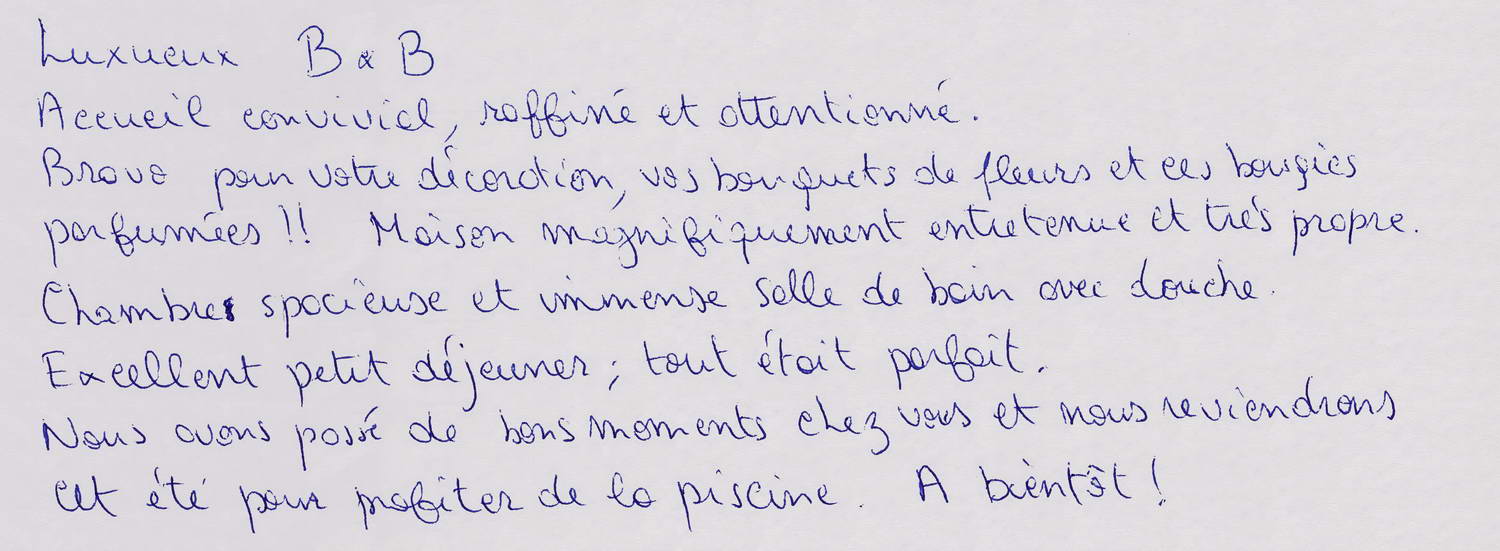 Luxueux B & B
Accueil convivial, raffiné et attentionné.
Bravo pour votre décoration, vos bouquets de fleurs et ces bougies
parfumées !! Maison magnifiquement entretenue et très propre.
Chambre spacieuse et immense salle de bain avec douche.
Excellent petit déjeuner ; tout était parfait.
Nous avons passé de bons moments chez vous et nous reviendrons
cet été pour profiter de la piscine. A bientôt !